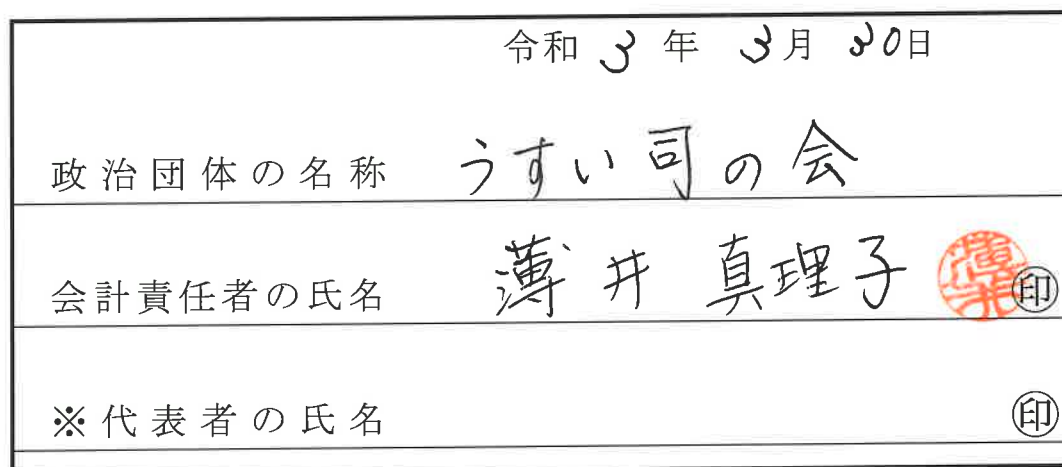 令和 3 年 3月 30日
政治団体の名称 うすい司の会
会計責任者の氏名 薄井 真理子 薄井 ㊞
※代表者の氏名 ㊞